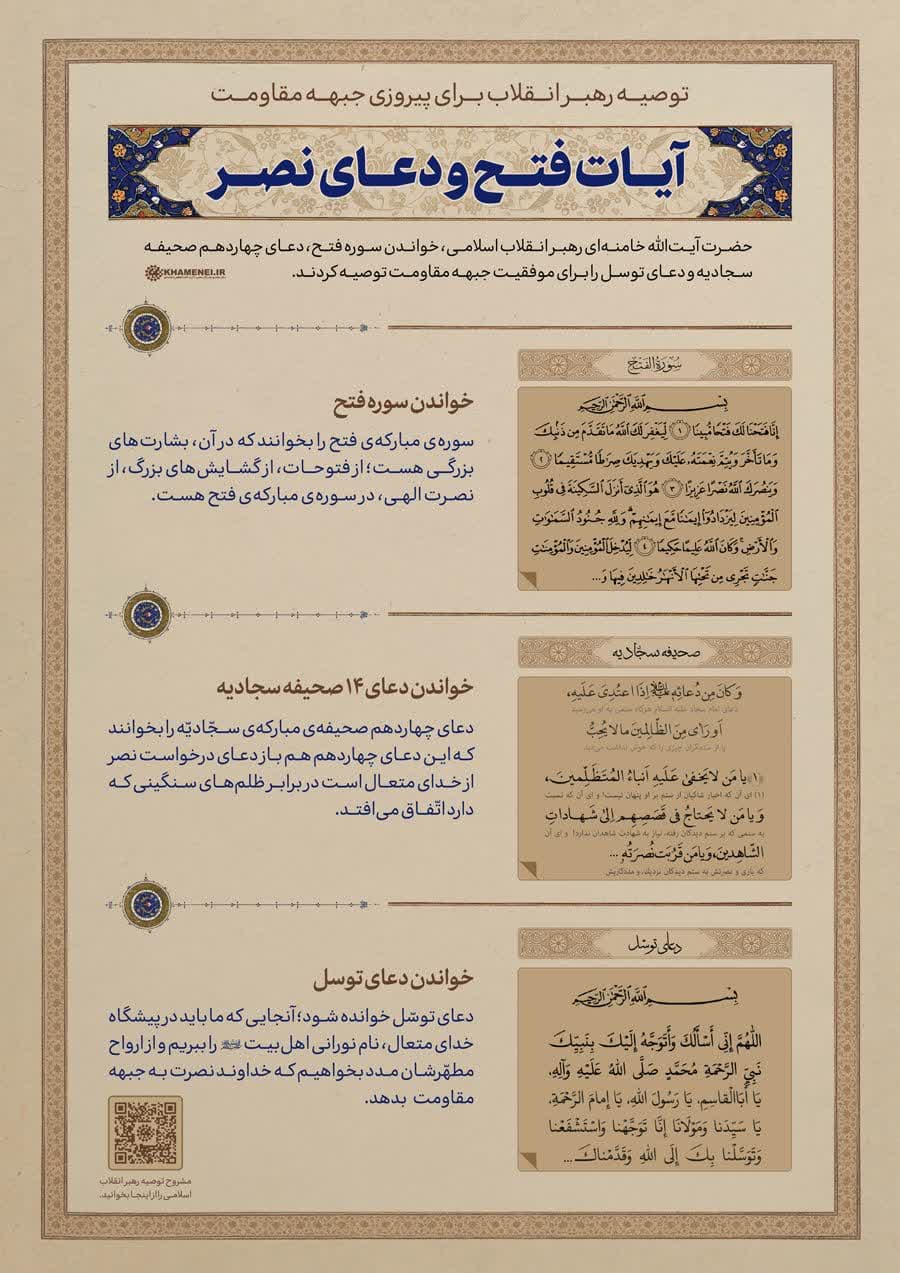 توصیه رهبر انقلاب برای پیروزی جبهه مقاومت
آیات فتح و دعای نصر
حضرت آیت‌الله خامنه‌ای رهبر انقلاب اسلامی، خواندن سوره فتح، دعای چهاردهم صحیفه
سجادیه و دعای توسل را برای موفقیت جبهه مقاومت توصیه کردند.
KHAMENEI.IR
سُورَةُ الفَتْح
بِسْمِ اللَّهِ الرَّحْمَٰنِ الرَّحِيمِ
إِنَّا فَتَحْنَا لَكَ فَتْحًا مُّبِينًا ﴿١﴾ لِّيَغْفِرَ لَكَ اللَّهُ مَا تَقَدَّمَ مِن ذَنۢبِكَ
وَمَا تَأَخَّرَ وَيُتِمَّ نِعْمَتَهُۥ عَلَيْكَ وَيَهْدِيَكَ صِرَٰطًا مُّسْتَقِيمًا ﴿٢﴾
وَيَنصُرَكَ اللَّهُ نَصْرًا عَزِيزًا ﴿٣﴾ هُوَ الَّذِىٓ أَنزَلَ السَّكِينَةَ فِى قُلُوبِ
الْمُؤْمِنِينَ لِيَزْدَادُوٓا۟ إِيمَٰنًا مَّعَ إِيمَٰنِهِمْ ۗ وَلِلَّهِ جُنُودُ السَّمَٰوَٰتِ
وَالْأَرْضِ ۚ وَكَانَ اللَّهُ عَلِيمًا حَكِيمًا ﴿٤﴾ لِّيُدْخِلَ الْمُؤْمِنِينَ وَالْمُؤْمِنَٰتِ
جَنَّٰتٍ تَجْرِى مِن تَحْتِهَا الْأَنْهَٰرُ خَٰلِدِينَ فِيهَا وَ...
خواندن سوره فتح
سوره‌ی مبارکه‌ی فتح را بخوانند که در آن، بشارت‌های
بزرگی هست؛ از فتوحات، از گشایش‌های بزرگ، از
نصرت الهی، در سوره‌ی مبارکه‌ی فتح هست.
صحیفه سجادیه
وَ كَانَ مِن دُعائِهِ إِذَا اعتُدِیَ عَلَیهِ،
دعای امام سجاد علیه السلام هرگاه ستمی به او می‌رسید
أَو رَأی مِنَ الظّالِمینَ ما لا یُحِبُّ
یا از ستمگران چیزی را که خوش نداشت می‌دید
﴿١﴾ یا مَن لا یَخفیٰ عَلَیهِ أَنباءُ المُتَظَلِّمینَ،
(۱) ای آن که اخبار شاکیان از ستم بر او پنهان نیست! و ای آن که نسبت
وَ یا مَن لا یَحتاجُ فی قَصَصِهِم إِلیٰ شَهاداتِ
به ستمی که بر ستم دیدگان رفته، نیاز به شهادت شاهدان ندارد! و ای آن
الشّاهِدینَ، وَ یا مَن قَرُبَت نُصرَتُهُ ...
که یاری و نصرتش به ستم دیدگان نزدیک، و مددکاریش
خواندن دعای ۱۴ صحیفه سجادیه
دعای چهاردهم صحیفه‌ی مبارکه‌ی سجّادیّه را بخوانند
که این دعای چهاردهم هم باز دعای درخواست نصر
از خدای متعال است در برابر ظلم‌های سنگینی که
دارد اتّفاق می‌افتد.
دعای توسل
بِسْمِ اللَّهِ الرَّحْمَٰنِ الرَّحِيمِ
اللَّهُمَّ إِنِّي أَسْأَلُكَ وَأَتَوَجَّهُ إِلَيْكَ بِنَبِيِّكَ
نَبِيِّ الرَّحْمَةِ مُحَمَّدٍ صَلَّى اللهُ عَلَيْهِ وَآلِهِ.
يَا أَبَاالْقَاسِمِ، يَا رَسُولَ اللهِ، يَا إِمَامَ الرَّحْمَةِ،
يَا سَيِّدَنَا وَمَوْلَانَا إِنَّا تَوَجَّهْنَا وَاسْتَشْفَعْنَا
وَتَوَسَّلْنَا بِكَ إِلَى اللهِ وَقَدَّمْنَاكَ ...
خواندن دعای توسل
دعای توسّل خوانده شود؛ آنجایی که ما باید در پیشگاه
خدای متعال، نام نورانی اهل‌بیت را ببریم و از ارواح
مطهّرشان مدد بخواهیم که خداوند نصرت به جبهه
مقاومت بدهد.
مشروح توصیه رهبر انقلاب
اسلامی را از اینجا بخوانید.